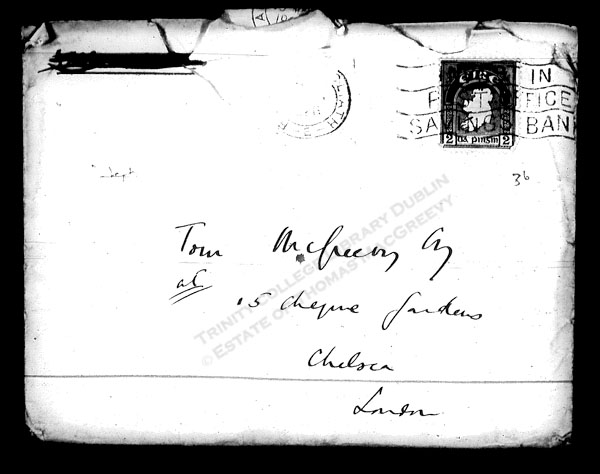 IN
POST OFFICE
SAVINGS BANK
2 dá pinsin 2
Sept
36
Tom McGreevy Esq
at
15 Cheyne Gardens
Chelsea
London
TRINITY COLLEGE LIBRARY DUBLIN
© ESTATE OF THOMAS MACGREEVY